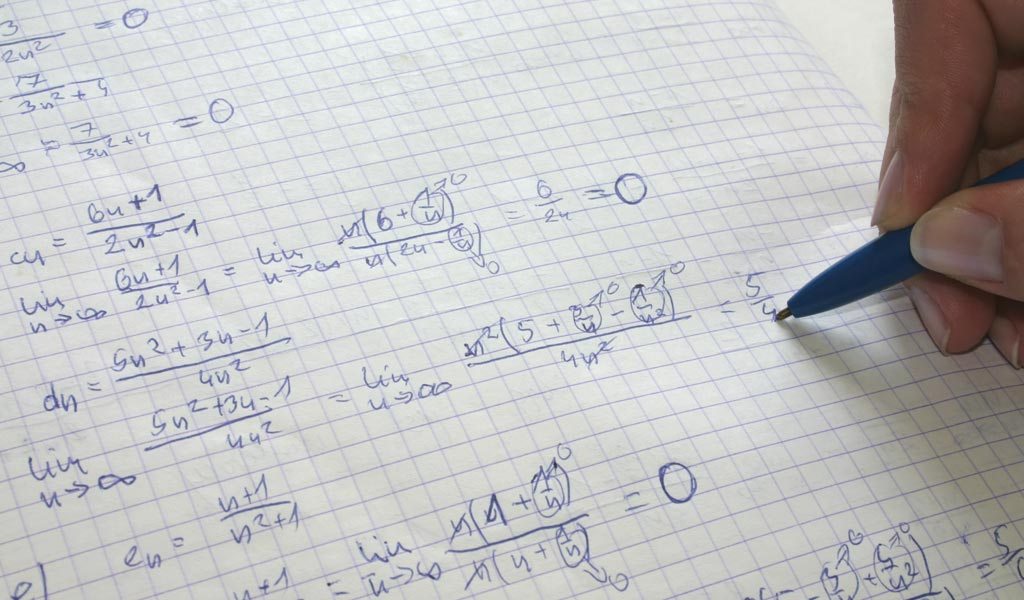 3/2n² = 0
7/3n²+4
∞ 7/3n²+4 = 0
cn = 6n+1/2n²-1
lim n→∞ 6n+1/2n²-1 = lim n→∞ n(6 + 1/n)→0/n(2n - 1/n)→0 = 6/2n = 0
dn = 5n²+3n-1/4n²
lim n→∞ 5n²+3n-1/4n² = lim n→∞ n²(5 + 3/n→0 - 1/n²→0)/4n² = 5/4
en = n+1/n²+1
e) n+1 = lim n→∞ n(1 + 1/n)→0/n(n + 1/n)→0 = 0